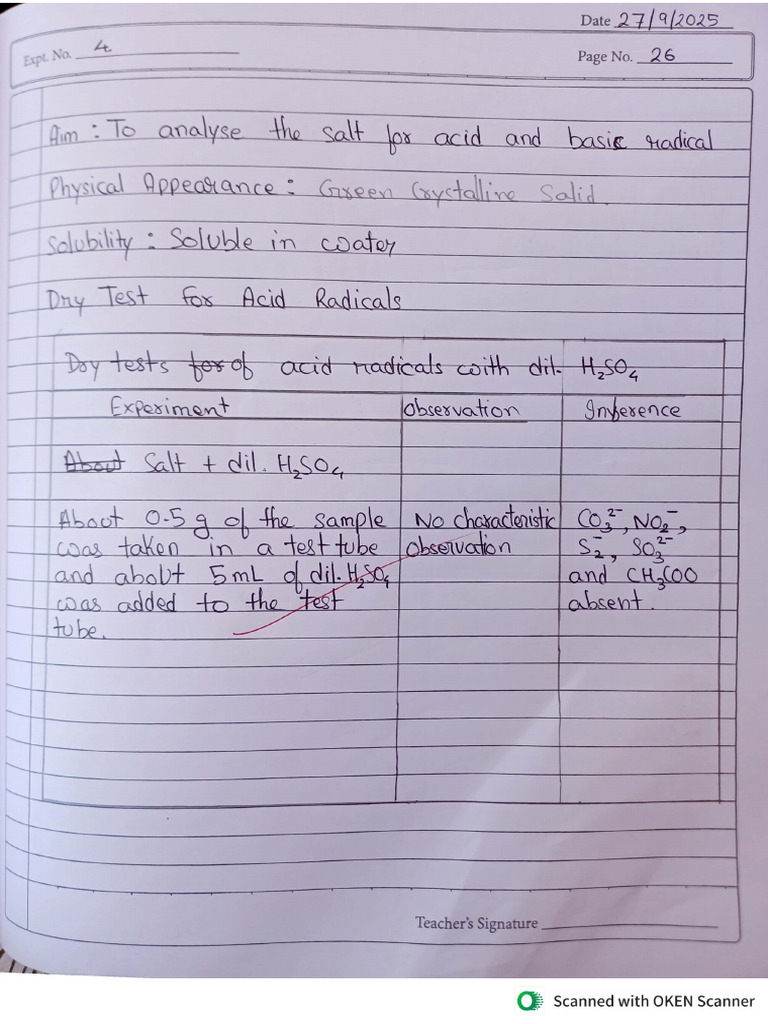 Date 27/9/2025
Expt. No. 4
Page No. 26
Aim : To analyse the salt for acid and basic radical
Physical Appearance : Green Crystalline Solid.
Solubility : Soluble in water
Dry Test for Acid Radicals
Dry tests for of acid radicals with dil. H₂SO₄
Experiment Observation Inference
About Salt + dil. H₂SO₄
About 0.5 g of the sample No characteristic CO₃²⁻, NO₂⁻,
was taken in a test tube observation S₂⁻, SO₃²⁻
and about 5 mL of dil. H₂SO₄ and CH₃COO
was added to the test absent.
tube.
Teacher's Signature
Scanned with OKEN Scanner